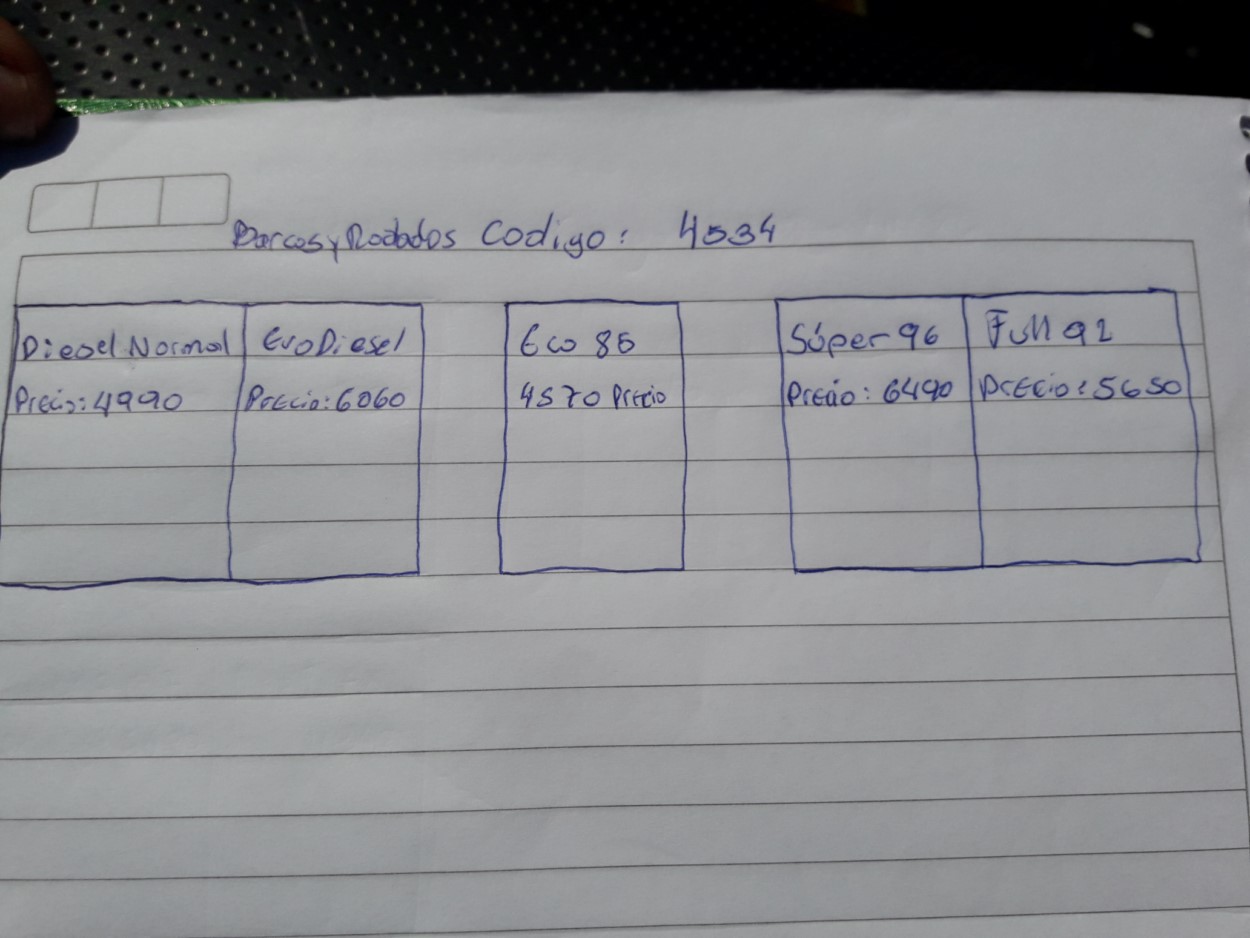 Barcos y Rodados Codigo: 4534
Diesel Normal EvoDiesel Eco 85 Súper 96 Full 92
Precio: 4990 Precio: 6060 4570 Precio Precio: 6490 Precio: 5650